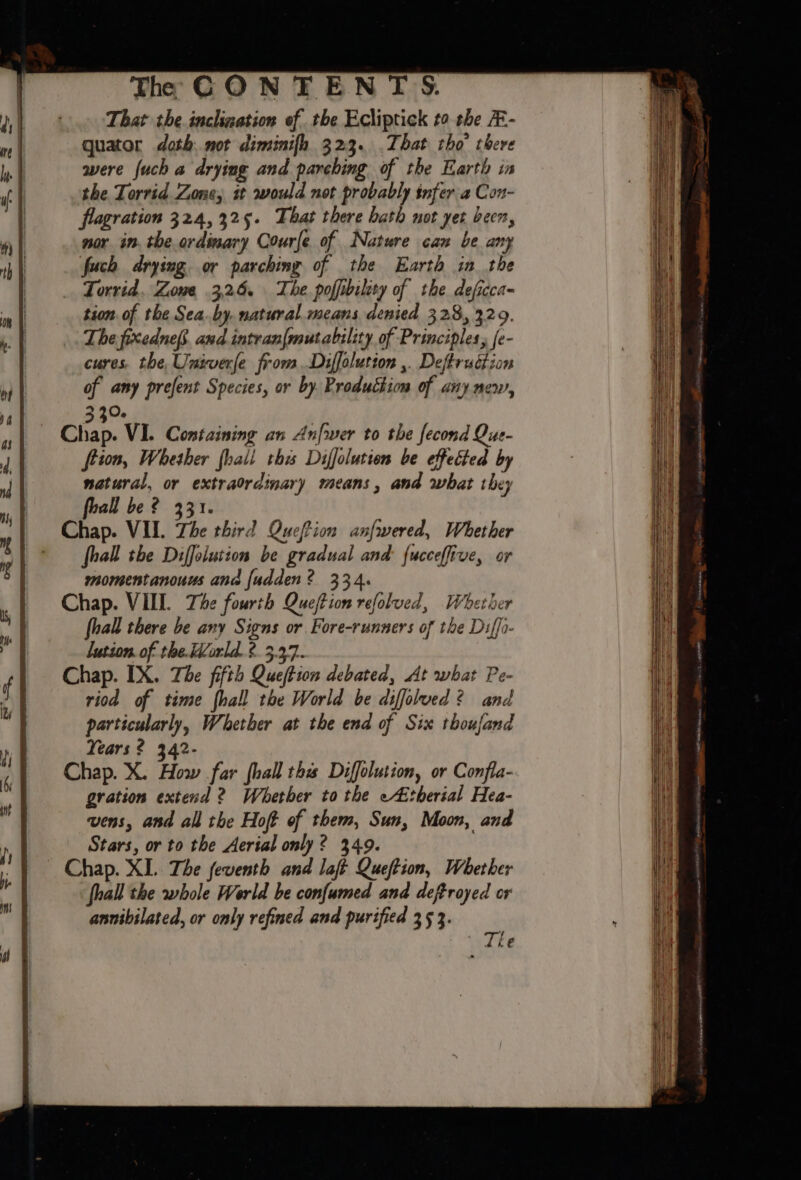 The CONTENTS.
That the inclination of the Ecliptick to the Æ-
quator doth not diminiſh 323. That tho' there
were ſuch a drying and parching of the Earth in
the Torrid Zone, it would not probably infer a Con-
flagration 324, 325. That there hath not yet been,
nor in the ordinary Courſe of Nature can be any
ſuch drying or parching of the Earth in the
Torrid Zone 326. The poſſibility of the deſicca-
tion of the Sea by natural means denied 328, 329.
The fixedneſs and intranſmutability of Principles, ſe-
cures the Univerſe from Diſſolution, Deſtruction
of any preſent Species, or by Production of any new,
330.
Chap. VI. Containing an Anſwer to the ſecond Que-
ſtion, Whether ſhall this Diſſolution be effected by
natural, or extraordinary means, and what they
ſhall be? 331.
Chap. VII. The third Queſtion anſwered, Whether
ſhall the Diſſolution be gradual and ſucceſſive, or
momentanouus and ſudden? 334.
Chap. VIII. The fourth Queſtion reſolved, Whether
ſhall there be any Signs or Fore-runners of the Diſſo-
lution of the World? 337.
Chap. IX. The fifth Queſtion debated, At what Pe-
riod of time ſhall the World be diſſolved? and
particularly, Whether at the end of Six thouſand
Years? 342.
Chap. X. How far ſhall this Diſſolution, or Confla-
gration extend? Whether to the Ætherial Hea-
vens, and all the Hoſt of them, Sun, Moon, and
Stars, or to the Aerial only? 349.
Chap. XI. The ſeventh and laſt Queſtion, Whether
ſhall the whole World be conſumed and deſtroyed or
annibilated, or only refined and purified 353.
The